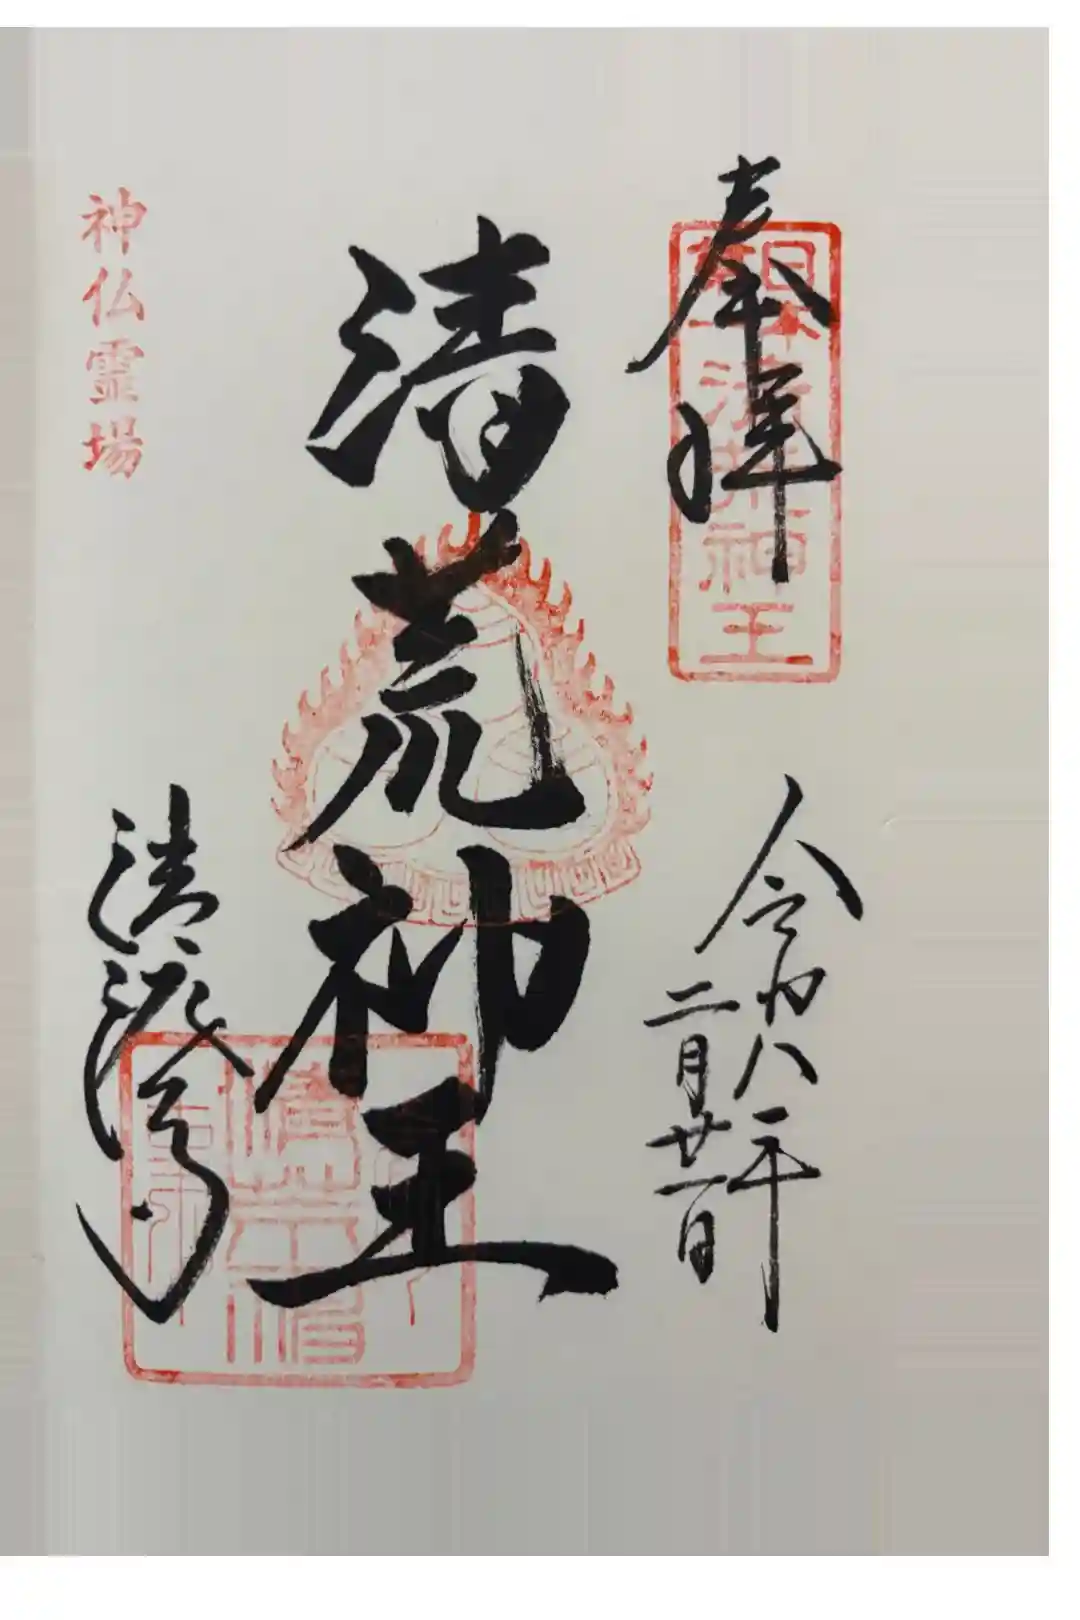 奉拝
日本
第一
清荒神王
令和八年
二月廿一日
清荒神王
神仏霊場
清澄寺